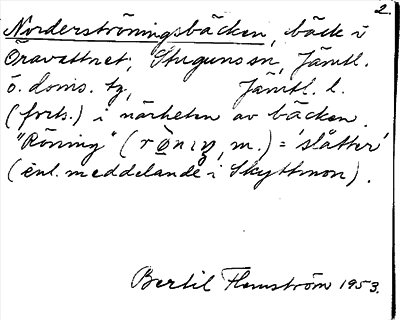 2.
Norderströningsbäcken, bäck i
Öravattnet, Stuguns sn, Jämtl.
ö. doms. tg, Jämtl. l.
(forts.) i närheten av bäcken.
"Röning" (rö̀nıŋ, m.) = 'slåtter'
(enl. meddelande i Skyttmon).
Bertil Flemström 1953.